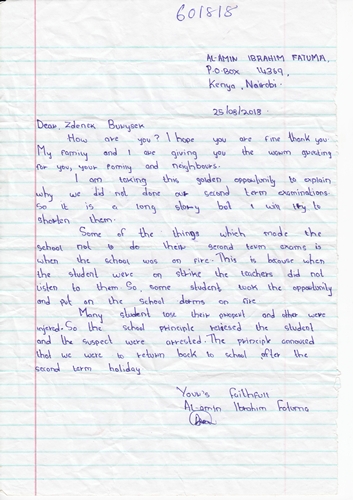 601818
AL-AMIN IBRAHIM FATUMA,
P.O.BOX 14369,
Kenya, Nairobi.
25/08/2018
Dear, Zdenek
How are you? I hope you are fine thank you.
My family and I are giving you the warm greeting
for you, your family and neighbours.
I am taking this golden opportunity to explain
why we did not done our second term examinations.
So it is a long story but I will try to
shorten them.
Some of the things which made the
school not to do their second term exams is
when the school was on fire. This is because when
the student were on strike the teachers did not
listen to them So, some student took the opportunity
and put on the school dorms on fire
Many student lose their and other were
injured. So the school principle the student
and the suspect were arrested. The principle
that we were to return back to school after the
second term holiday
Your's Faithfull
AL-amin Ibrahim Fatuma